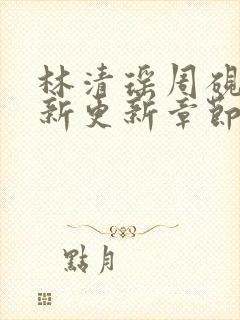 林清瑶周砚
新更新章節
點月